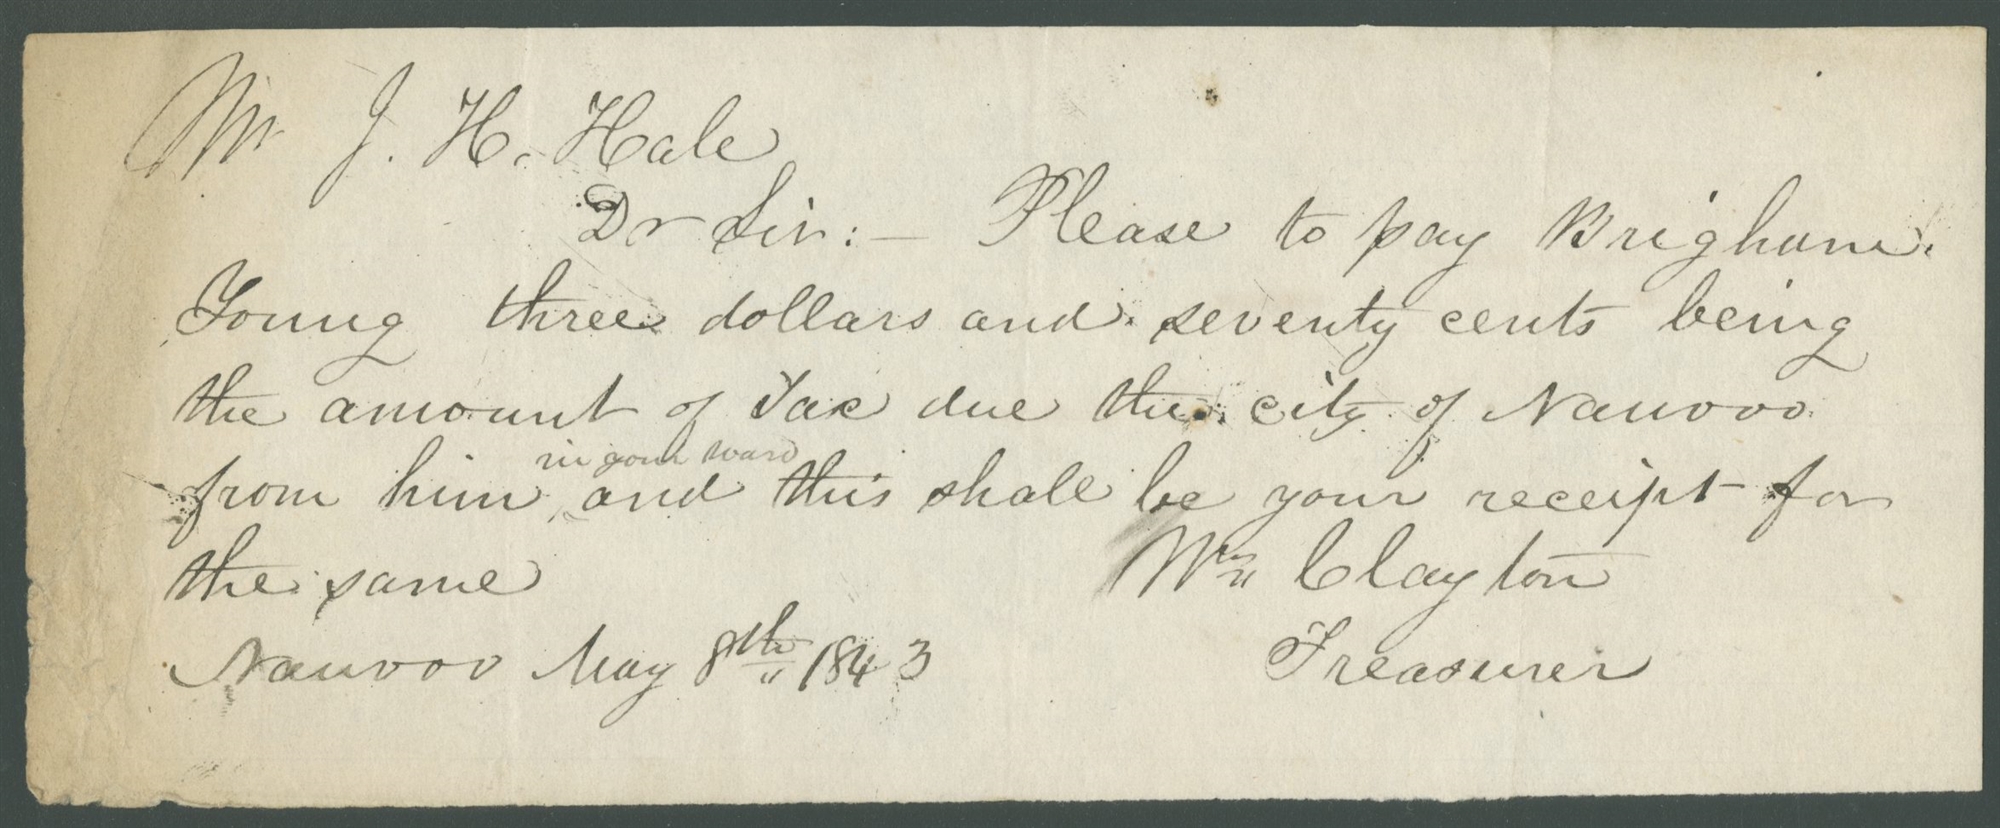 Mr J. H. Hale
Dr Sir:— Please to pay Brigham
Young three dollars and seventy cents being
the amount of Tax due the city of Nauvoo
in your ward
from him, and this shall be your receipt for
the same
Wm Clayton
Nauvoo May 8th 1843
Treasurer